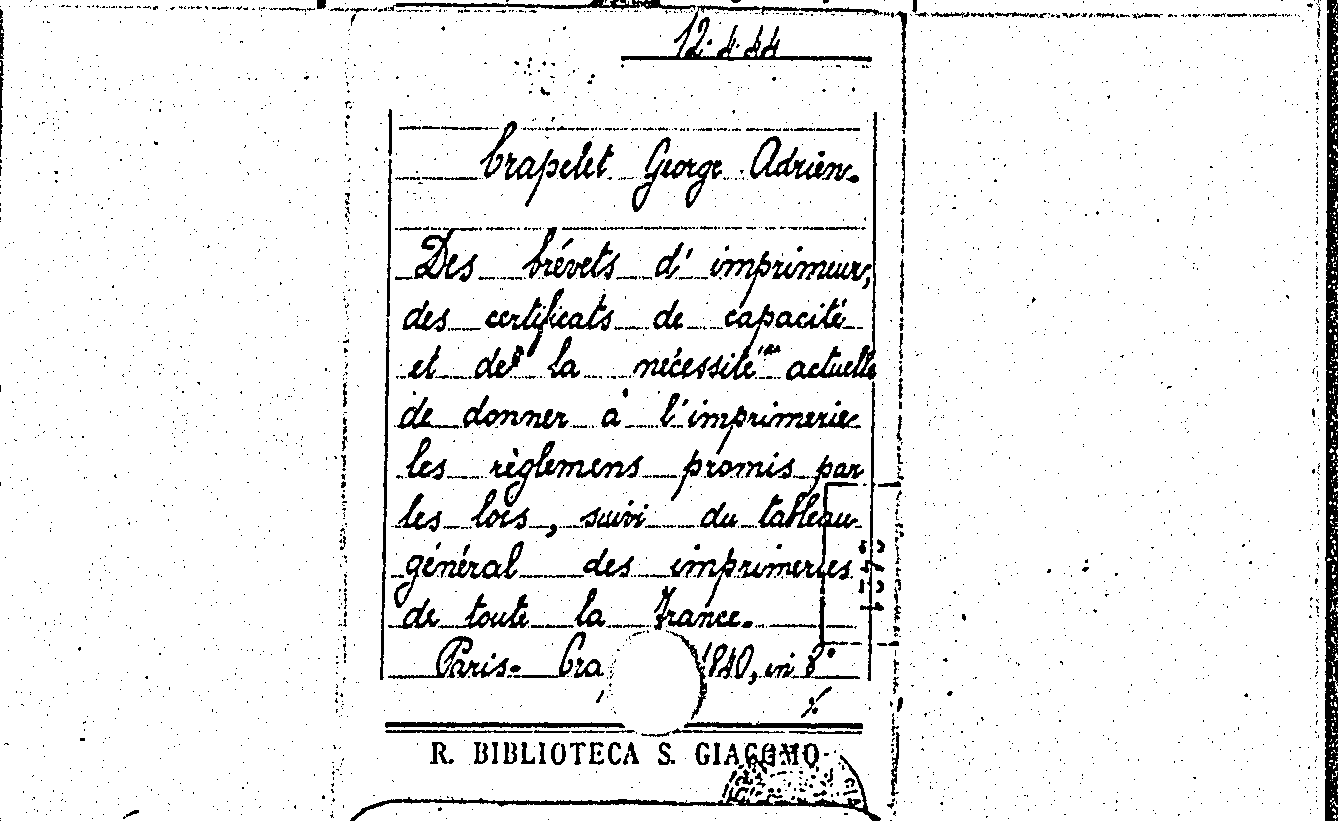 12.4.44
Crapelet George Adrien.
Des brévets d'imprimeur,
des certificats de capacité
et de la nécessité actuelle
de donner à l'imprimerie
les règlemens promis par
les lois, suivi du tableau
général des imprimeries
de toute la France.
Paris- Cra 1840, in 8°
R. BIBLIOTECA S. GIACOMO